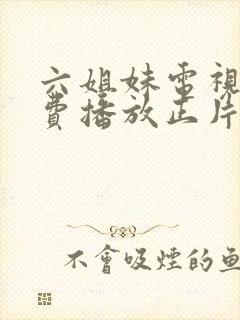 六姐妹電視
費播放正片
不會吸煙的魚